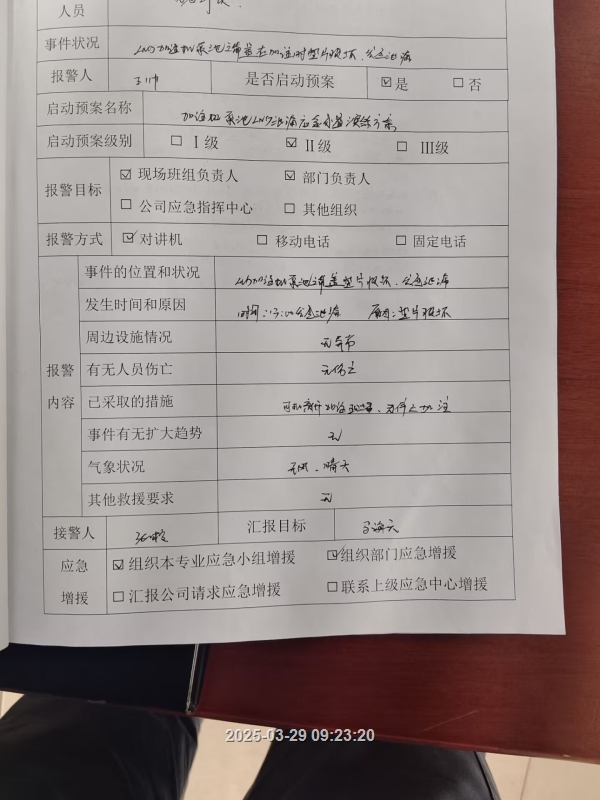 人员
事件状况 LNG加注机泵池上端盖在加注时垫片损坏、
报警人 是否启动预案 ☑是 ☐否
启动预案名称 加注机泵池LNG泄漏应急处置演练方案
启动预案级别 ☐Ⅰ级 ☑Ⅱ级 ☐Ⅲ级
报警目标 ☑现场班组负责人 ☑部门负责人
☐公司应急指挥中心 ☐其他组织
报警方式 ☑对讲机 ☐移动电话 ☐固定电话
报警内容
事件的位置和状况 垫片损坏、
发生时间和原因 时间: 原因:垫片损坏
周边设施情况 无异常
有无人员伤亡 无伤亡
已采取的措施 停止加注
事件有无扩大趋势 无
气象状况 晴天
其他救援要求 无
接警人 汇报目标
应急增援 ☑组织本专业应急小组增援 ☑组织部门应急增援
☐汇报公司请求应急增援 ☐联系上级应急中心增援
2025-03-29 09:23:20